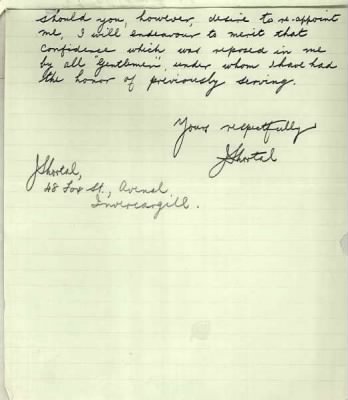 should you, however, desire to re-appoint
me, I will endeavour to merit that
confidence which was reposed in me
by all "gentlemen", under whom I have had
the honor of previously serving.
Yours respectfully
JShortal
JShortal,
48 Fox St., Avenal,
Invercargill.